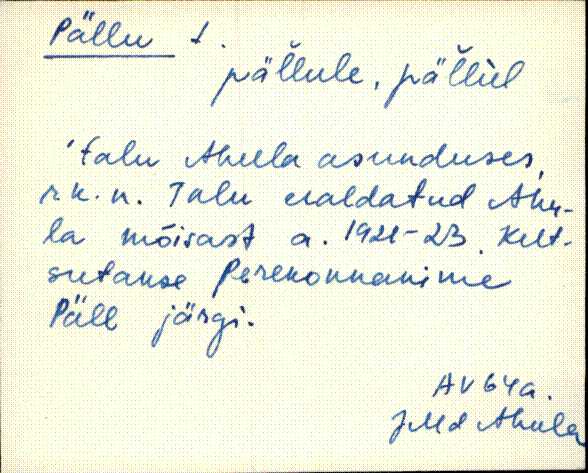 Pällu t.
pällule, pällil
talu Ahula asunduses,
r.k.n. Talu eraldatud Ahu-
la mõisast a. 1921-23. Kut-
sutakse Perekonnanime
Päll järgi.
AV 64a.
JMd Ahula